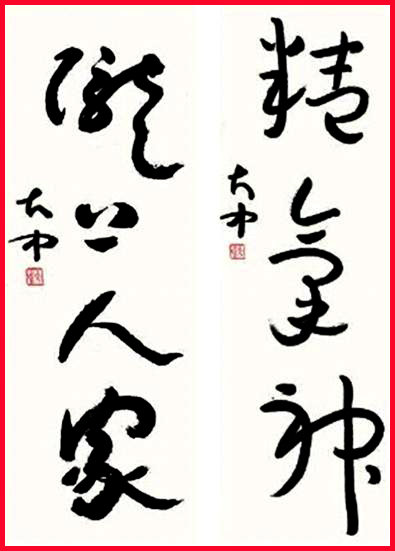 精氣神
大中
隴上人家
大中